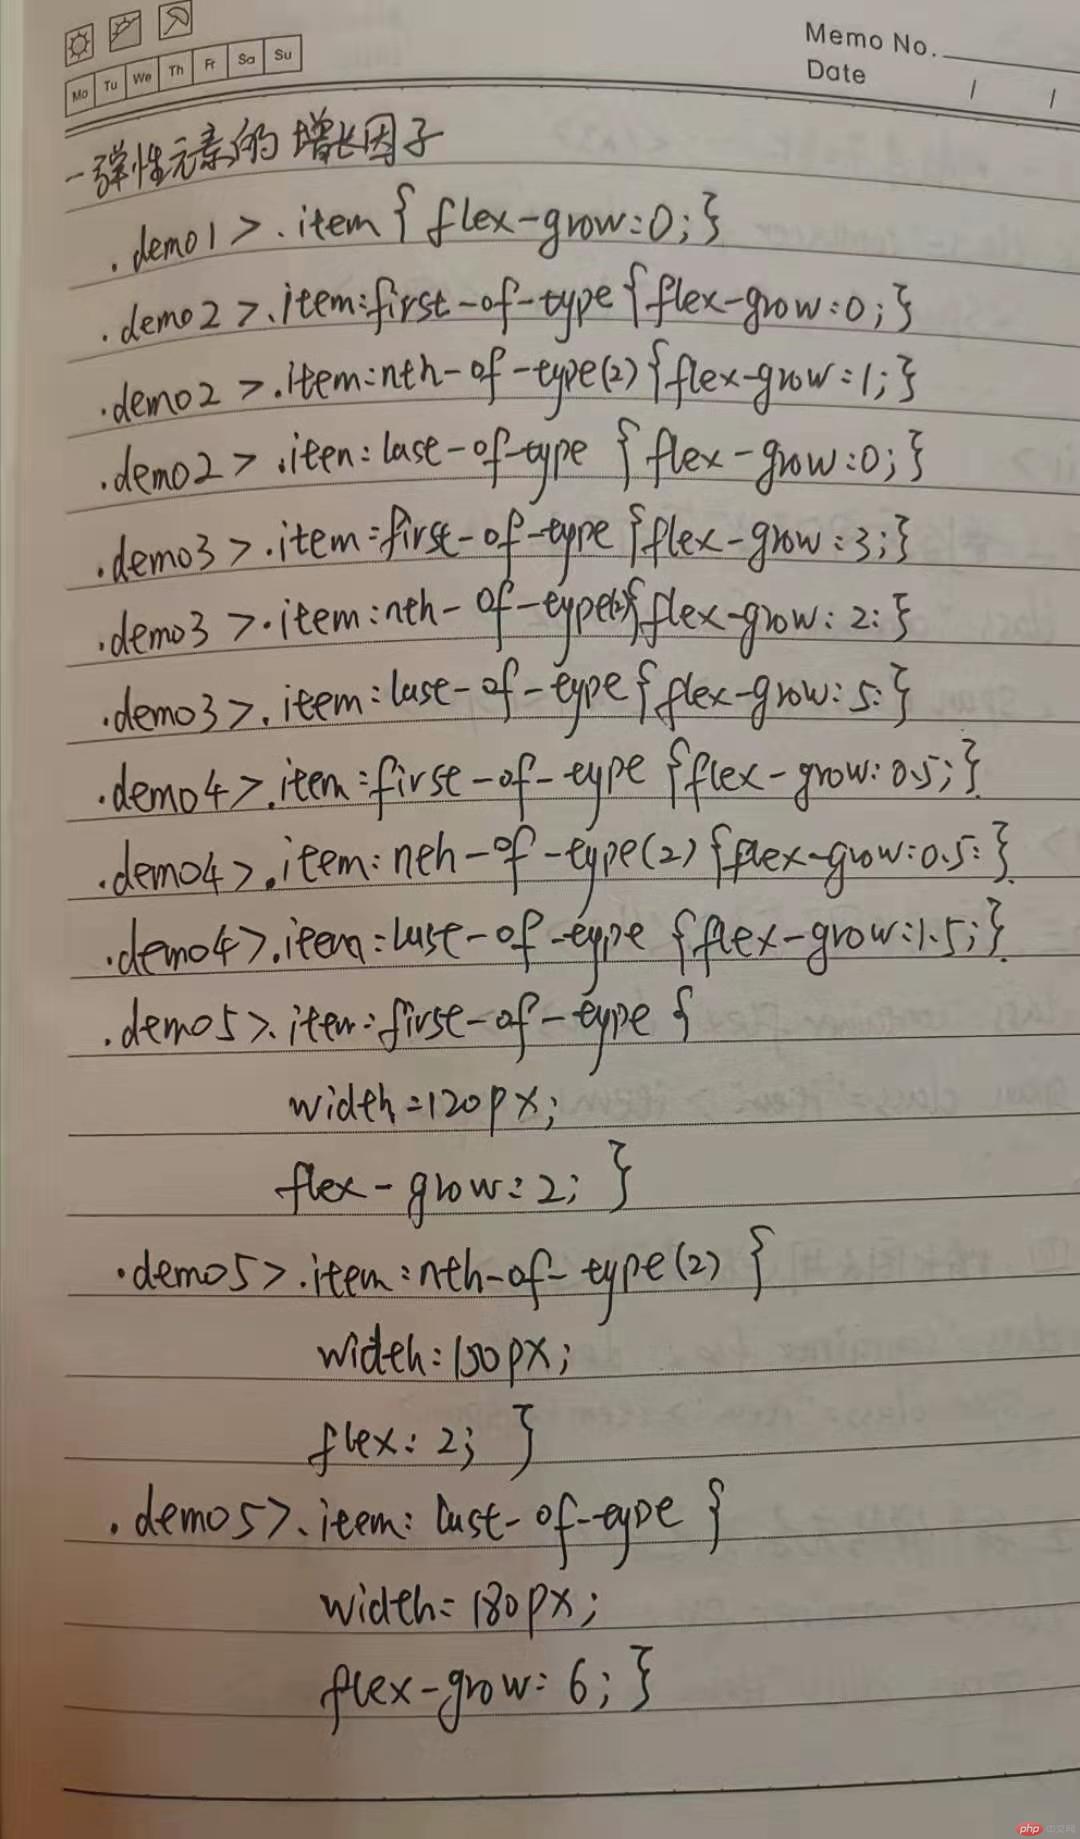 Memo No.
Date / /
Mo Tu We Th Fr Sa Su
一弹性元素的增长因子
.demo1>.item{flex-grow:0;}
.demo2>.item:first-of-type{flex-grow:0;}
.demo2>.item:nth-of-type(2){flex-grow:1;}
.demo2>.iten:last-of-type {flex-grow:0;}
.demo3>.item:first-of-type{flex-grow:3;}
.demo3>.item:nth-of-type(2){flex-grow:2:}
.demo3>.item:last-of-type{flex-grow:5:}
.demo4>.item:first-of-type {flex-grow:0.5;}
.demo4>.item:nth-of-type(2){flex-grow:0.5:}
.demo4>.item:last-of-type {flex-grow:1.5;}
.demo5>.item:first-of-type {
width=120px;
flex-grow:2; }
.demo5>.item:nth-of-type(2) {
width:150px;
flex:2; }
.demo5>.item:last-of-type {
width:180px;
flex-grow:6;}
php中文网